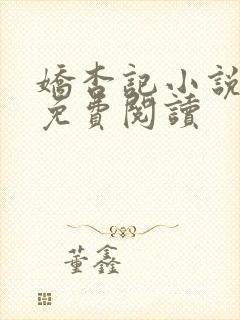 嬌杏記小說
免費閱讀
董鑫